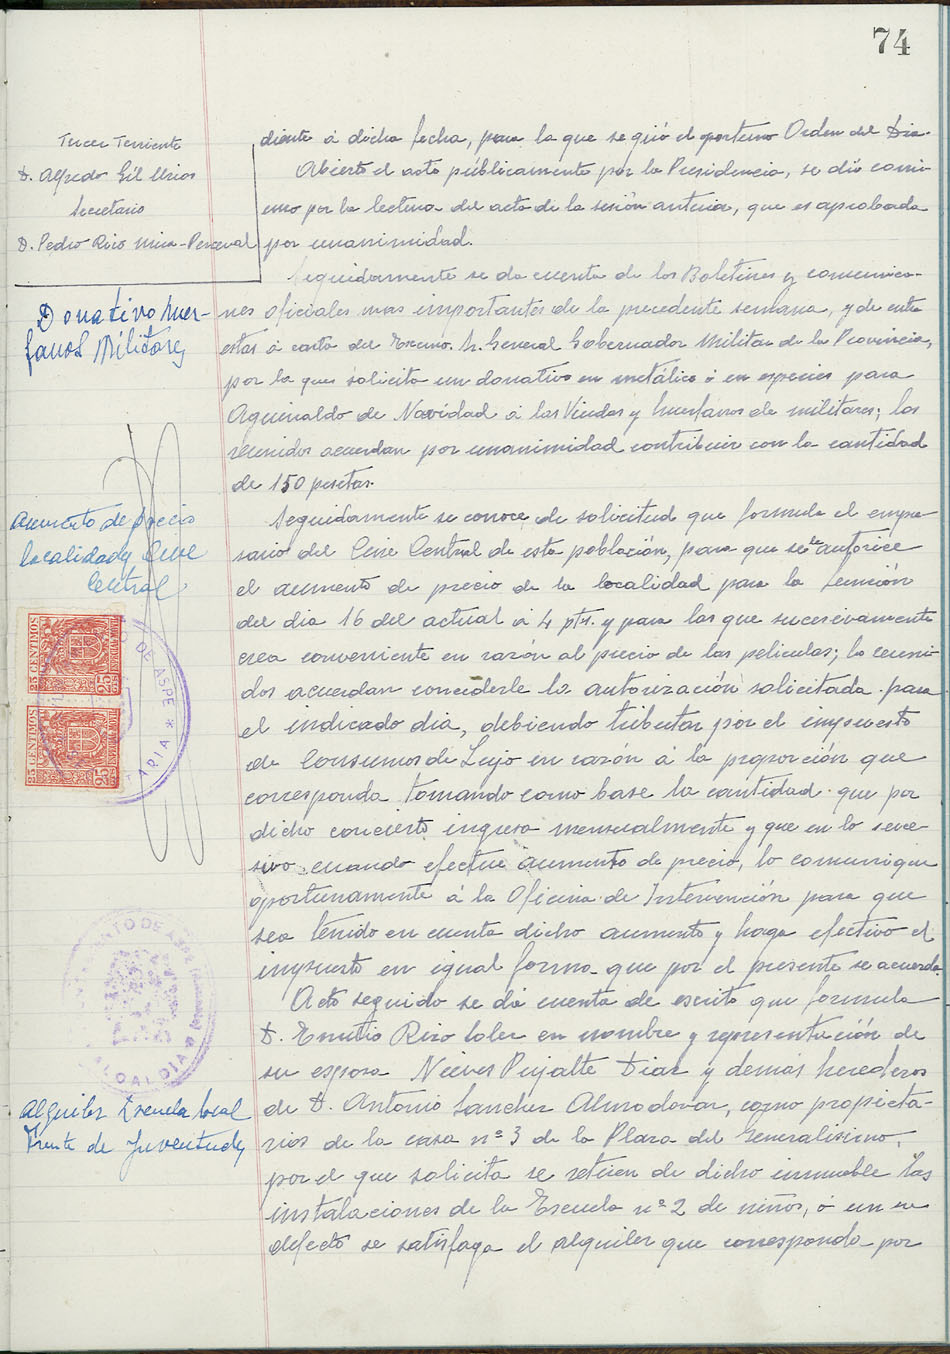 74
Tercer Teniente
D. Alfredo Gil Urios
Secretario
D. Pedro Rico Mira-Perceval
diente á dicha fecha, para la que se guió el oportuno Orden del Dia.
Abierto el acto públicamente por la Presidencia, se dió comi-
enso por la lectura del acta de la sesión anterior, que es aprobada
por unanimidad.
Donativo Huer-
fanos Militares
Seguidamente se da cuenta de los Boletines y comunicacio-
nes oficiales mas importantes de la precedente semana, y de entre
estas á carta del Excmo. Sr. General Gobernador Militar de la Provincia,
por la que solicita un donativo en metálico ó en especies para
Aguinaldo de Navidad á las Viudas y huerfanos de militares; los
reunidos acuerdan por unanimidad contribuir con la cantidad
de 150 pesetas.
Aumento de precio
localidades Cine
Central
Seguidamente se conoce de solicitud que formula el empre-
sario del Cine Central de esta población, para que se le autorice
el aumento de precio de la localidad para la función
del dia 16 del actual á 4 pts. y para las que sucesivamente
crea conveniente en razón al precio de las peliculas; los reuni-
dos acuerdan concederle la autorización solicitada para
el indicado dia, debiendo tributar por el impuesto
de Consumos de Lujo en razón á la proporción que
corresponda tomando como base la cantidad que por
dicho concierto ingresa mensualmente y que en lo suce-
sivo cuando efectue aumento de precio, lo comunique
oportunamente á la Oficina de Intervención para que
sea tenido en cuenta dicho aumento y haga efectivo el
impuesto en igual forma que por el presente se acuerda.
25 CENTIMOS
25 CTS
ESPECIAL MOVIL
25 CENTIMOS
25 CTS
ESPECIAL MOVIL
DE ASPE
ARIA
AYUNTAMIENTO DE ASPE
ALCALDIA
Alquiler Escuela local
Frente de Juventudes
Acto seguido se dá cuenta de escrito que formula
D. Emilio Rizo Soler en nombre y representación de
su esposa Nieves Pujalte Diaz y demás herederos
de D. Antonio Sanchez Almodovar, como propieta-
rios de la casa nº 3 de la Plaza del Generalisimo,
por el que solicita se retiren de dicho inmueble las
instalaciones de la Escuela nº 2 de niños, ó en su
defecto se satisfaga el alquiler que corresponda por